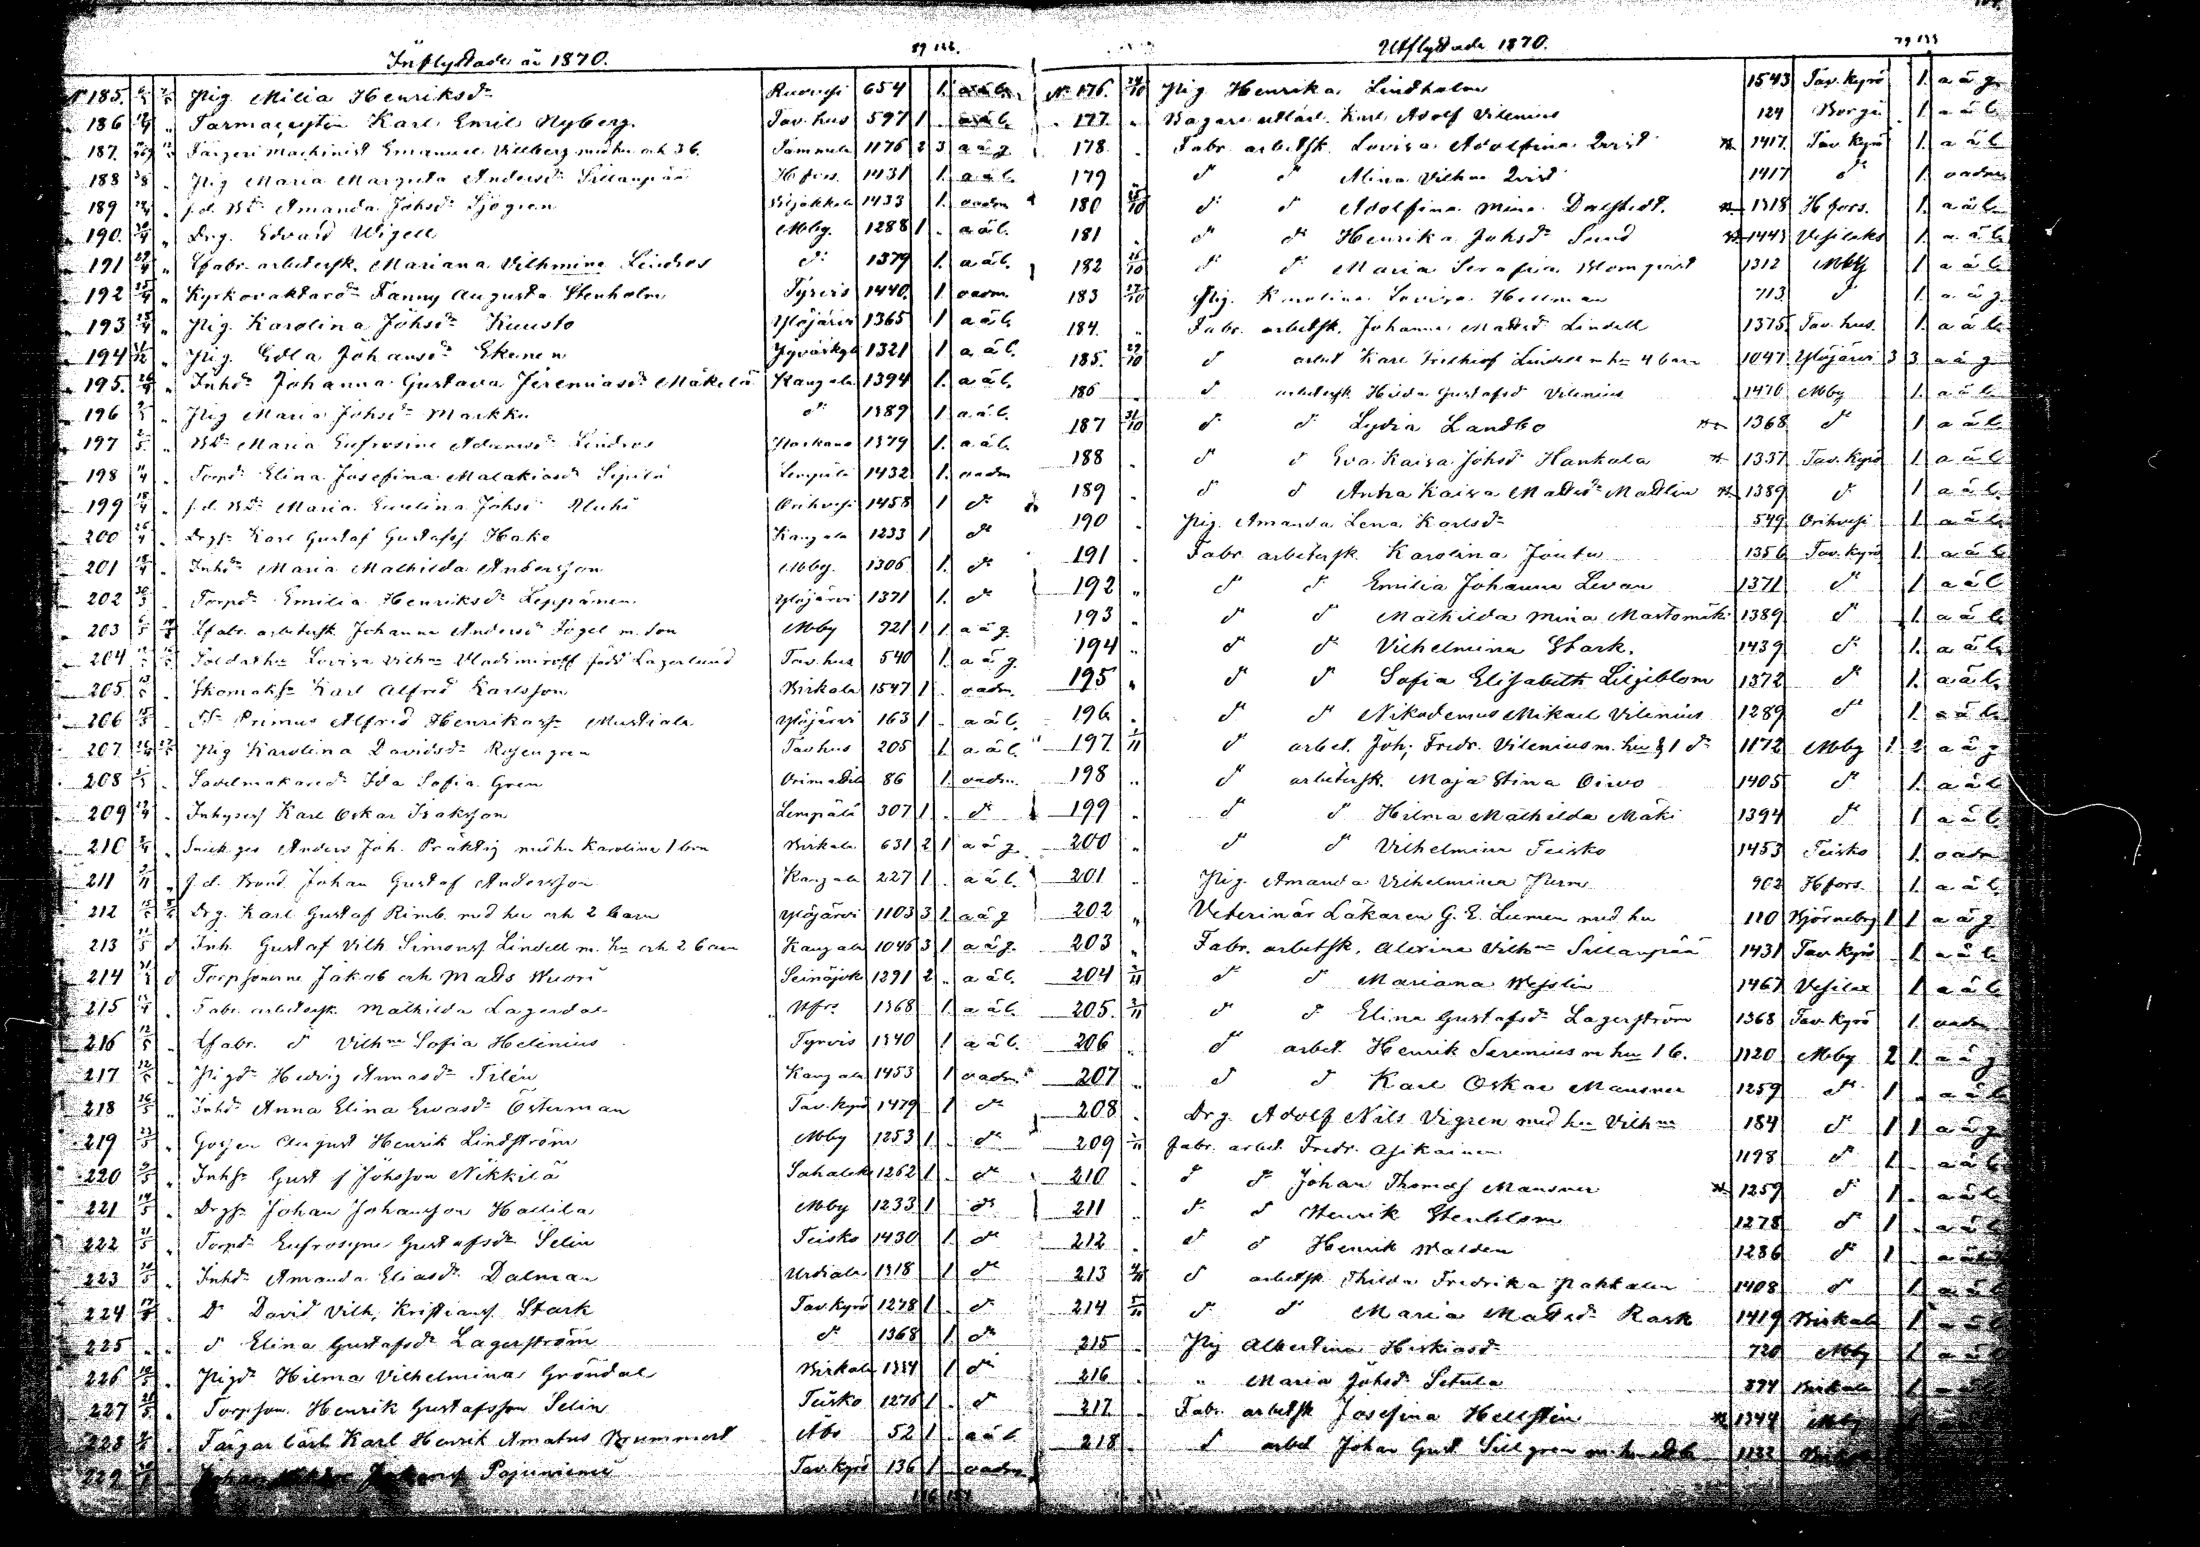 Inflyttade år 1870.
89 122.
N° 185. Pig. Milia Henriksdr Ruovesi 654 1. a ä b.
186 Farmaceuten Karl Emil Nyberg. Tav. hus 597 1 . a ä b.
187. Färgeri machinist Emanuel Villberg med hu och 3 b. Tammela 1176 2 3 a ä g
188 Pig Maria Margreta Andersdr Sillanpää H fors. 1431 1. a ä b.
189 f.d. Bdr Amanda Johsdr Sjögren 1433 1. oadm
190. Drg. Edvard Wigell Mbg. 1288 1 . a ä b.
191 Lfabr. arbetersk. Mariana Vilhmina Lindros dr 1379 1. a ä b.
192 Kyrkovaktaredr Fanny Augusta Stenholm Tyrvis 1440. 1 oadm.
193 Pig. Karolina Johsdr Kuusto Ylöjärvi 1365 1 a ä b.
194 Pig. Edla Johansdr Ekenen Jyväskylä 1321 1 a ä b.
195. Inhdr Johanna Gustava Jeremiasdr Mäkelä Kangala 1394 1. a ä b.
196 Pig Maria Johsdr Markku dr 1389 1 a ä b.
197 Bdr Maria Eufrosine Adamsdr Lindros 1379 1. a ä b.
198 Torpdr Elina Josefina Malakiasdr Sipilä Lempälä 1432 1. oadm
199 f.d. Bdr Maria Evelina Johsdr Orihvesi 1458 1 dr
200 Drgs Karl Gustaf Gustafsf Hake Kangala 1233 1 dr
201 Inhdr Maria Mathilda Andersson Mbg. 1306 1. dr
202 Torpdr Emilia Henriksdr Leppänen Ylöjärvi 1371 1. dr
203 Lfabr. arbetersk. Johanna Andersdr Fogel m. son Mby 921 1 1 a ä g.
204 Soldathu Lovisa Vilhna Vladimiroff född Lagerlund Tav. hus 540 1. a ä g.
205. Skomaks Karl Alfred Karlsson Birkala 1547 1 oadm.
206 Primus Alfred Henriksson Mustiala Ylöjärvi 163 1 . a ä b.
207 Pig Karolina Davidsdr Rosengren Tavhus 205 1. a ä b.
208 Sadelmakaredr Ida Sofia Gren Orimattila 86 1. oadm.
209 Inhysesf Karl Oskar Isaksson Lempälä 307 1 . dr
210 Snick.ges Anders Joh. Präktig med hu Karolina 1 barn Birkala 631 2 1 a ä g
211 f.d. Bond. Johan Gustaf Andersson Kangala 227 1 . a ä b.
212 Drg. Karl Gustaf Rimb. med hu och 2 barn Ylöjärvi 1103 3 1 a ä g
213 Inh. Gustaf Vilh Simonsf Lindell m. hu och 2 barn Kangala 1046 3 1 a ä g.
214 Torpsönerne Jakob och Matts Wuori Seinäjok 1291 2 . a ä b.
215 Fabr. arbetersk. Mathilda Lagerdal 1368 1 a ä b.
216 Lfabr. dr Vilhna Sofia Helinius Tyrvis 1340 1 a ä b.
217 Pigdr Hedvig Annasdr Tilén Kangala 1453 1 oadm
218 Inhdr Anna Elina Evasdr Österman Tav. Kyrö 1479 1 dr
219 Gossen August Henrik Lindström Mby 1253 1 . dr
220 Inhs Gust f Johsson Nikkilä Sahalaks 1262 1 . dr
221 Drgs Johan Johansson Hallila Mby 1233 1 dr
222 Torpdr Eufrosyne Gustafsdr Selin Teisko 1430 1. dr
223 Inhdr Amanda Eliasdr Dalman Urdiala 1318 1 dr
224 Dr David Vilh, Kristiansf Stark Tav. Kyrö 1278 1 . dr
225 dr Elina Gustafsdr Lagerström dr 1368 1. dr
226 Pigdr Hilma Vilhelmina Gröndal Birkala 1384 1 dr
227 Torpson Henrik Gustafsson Selin Teisko 1276 1 . dr
228 Färgarlärl Karl Henrik Amatus Brummert Åbo 52 1 . a ä b
229 Pajuniemi Tav. Kyrö 136 1 . oadm
Utflyttade 1870.
79 133
N° 176. Pig Henrika Lindholm 1543 Tav. Kyrö 1. a ä g
177. Bagare ut lärl. Karl Adolf Vilenius 124 Borgå 1. a ä b.
178 Fabr. arbetsk. Lovisa Adolfina Qvist 1417. Tav. Kyrö 1. a ä b
179 dr dr Alina Vilhna Qvist 1417 dr 1. oadm
180 dr dr Adolfina Mina Dalstedt. 1318 H fors. 1. a ä b
181 dr dr Henrika Johsdr Sund 1443 Vesilaks 1. a ä b
182 dr dr Maria Serafina Blomqvist 1312 Mby 1 a ä b
183 Pig. Karolina Lovisa Hellman 713 dr 1 a ä g.
184. Fabr. arbetsk. Johanna Mattsd Lindell 1375. Tav. hus. 1. a ä b
185. dr arbet Karl Fridhiof Lindell m hu 4 barn 1047. Ylöjärvi 3 3 a ä g
186 dr arbetersk Hilda Gustafsd Vilenius 1476 Mby 1. a ä b
187 dr dr Lydia Landbo 1368 dr 1 a ä b
188 dr dr Eva Kaisa Johsd Hankala 1337 Tav. Kyrö 1. a ä b
189 dr dr Antra Kaisa Mattsdr Mattlin 1389 dr 1 a ä b
190 Pig. Amanda Lena Karlsdr 549 Orihvesi 1 a ä b
191 Fabr. arbetersk. Karolina Joutu 1356 Tav. Kyrö 1. a ä b
192 dr dr Emilia Johanna Levan 1371 dr 1 a ä b
193 dr dr Mathilda Mina Martomäki 1389 dr 1 a ä b
194 dr dr Vilhelmina Stark. 1439 dr 1. a ä b
195 dr dr Sofia Elisabeth Liljeblom 1372 dr 1. a ä b
196 dr dr Nikodemus Mikael Vilenius 1289 dr 1. a ä b
197. dr arbet. Joh; Fredr. Vilenius m. hu & 1 dr 1172 Mby 1 2 a ä g
198 dr arbetersk. Maja Stina Oivo 1405 dr 1. a ä b
199 dr dr Hilma Mathilda Mäki 1394 dr 1 a ä b
200 dr dr Vilhelmina Teisko 1453 Teisko 1. oadm
201 Pig. Amanda Vilhelmina 902 H fors. 1. a ä b
202 Veterinär Läkaren G. E. Lumen med hu 110 Björneborg 1 1 a ä g
203 Fabr. arbetsk. Alexina Vilhna Sillanpää 1431 Tav. Kyrö 1 a ä b
204 dr dr Mariana Wesslin 1467 Vesilax 1. a ä b
205. dr dr Elina Gustafsdr Lagerström 1368 Tav. Kyrö 1. oadm
206 dr arbet. Henrik Seremius m hu 1 b. 1120 Mby 2 1. a ä g
207 dr dr Karl Oskar Mansner 1259 dr 1 . a ä b
208 Drg. Adolf Nils Vigren med hu Vilhna 184 dr 1 1 a ä g
209 fabr. arbet. Fredr. Asikainen 1198 dr 1 . a ä b
210 dr dr Johan Thomasf Mansner 1259 dr 1 . a ä b
211 dr dr Henrik Stenblom 1278 dr 1 . a ä b
212 dr dr Henrik Walden 1286 dr 1 a ä b
213 dr arbetsk Thilda Fredrika Pakkala 1408 dr 1 a ä b
214 dr dr Maria Mattsdr Rask 1419 Birkala 1 a ä b
215 Pig Albertina Heskiasdr 720 Mby 1. a ä b
216 " Maria Johsdr Setula 894 Birkala 1. a ä b
217 Fabr. arbetsk Josefina Hellstén 1344 Mby
218 dr arbet Johan Gust Sillgren m. hu 1132